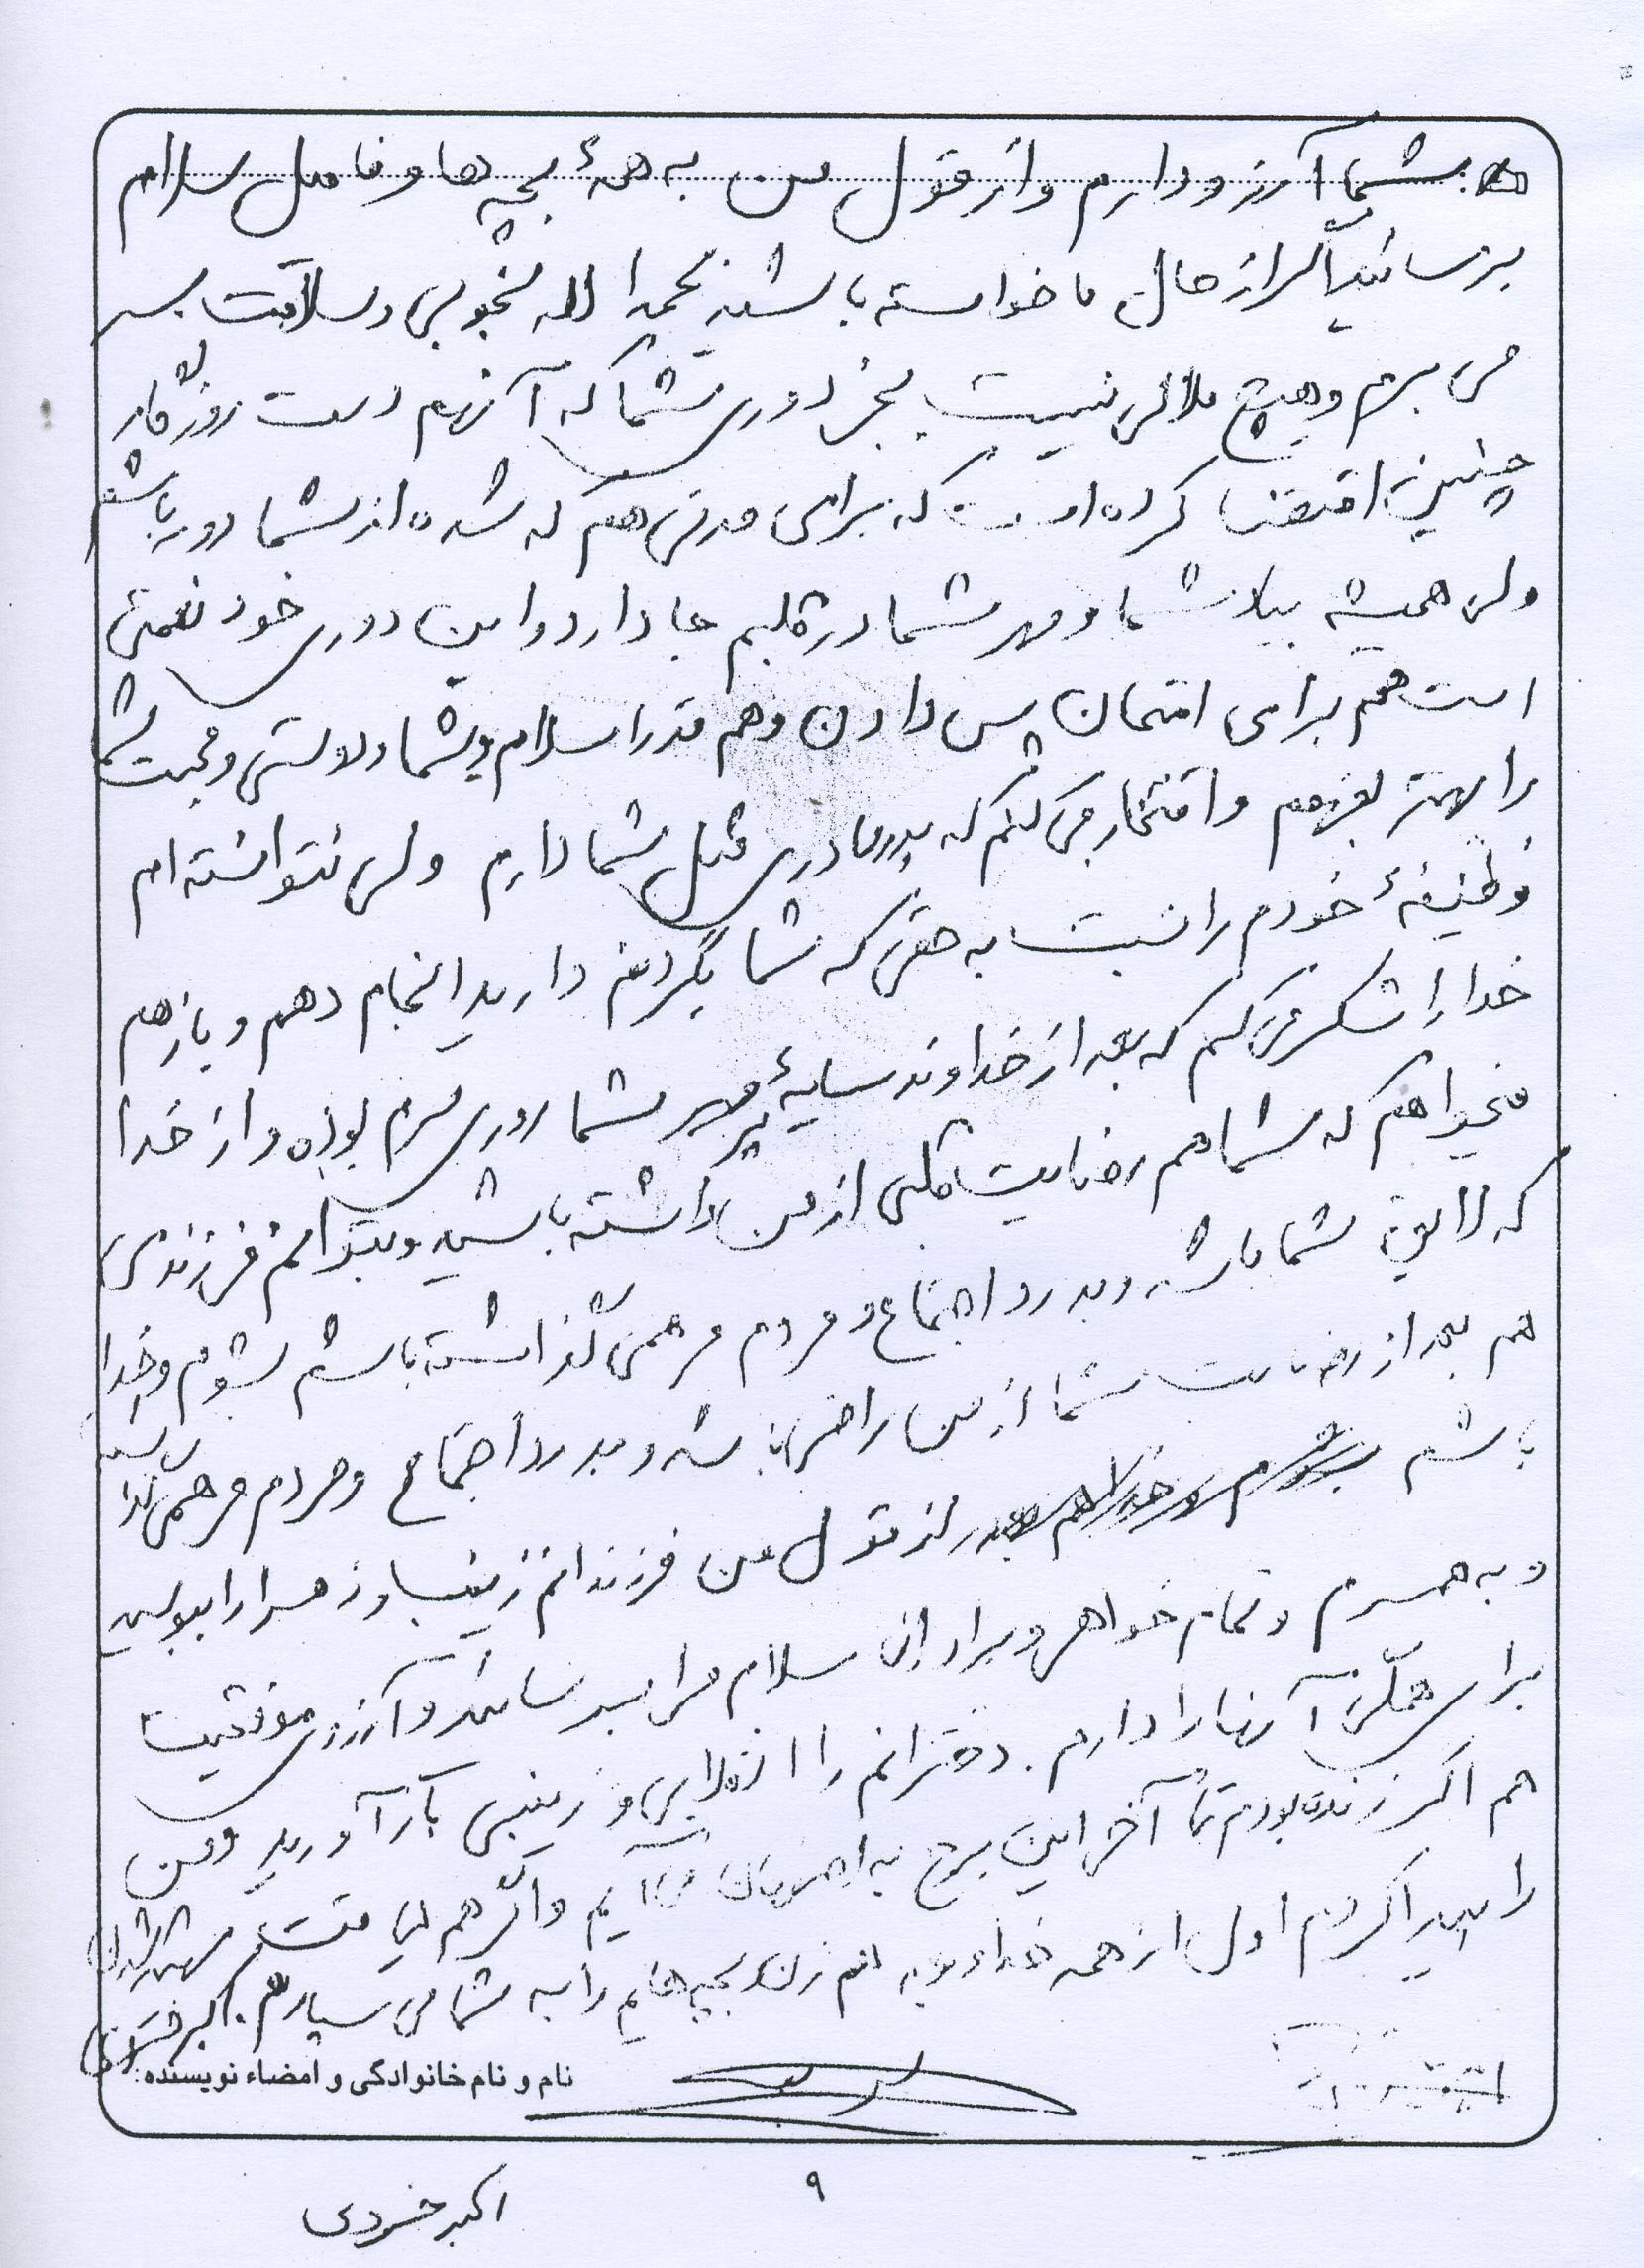 شما آرزو دارم و از قول من به همهٔ بچه ها و فامیل سلام
برسانید اگر از حال ما خواسته باشید بحمدا لله بخوبی و سلامت بسر
می برم و هیچ ملالی نیست بجز دوری شما که آنهم دست روزگار
چنین اقتضا کرده است که برای مدتی هم که شده از شما دور باشم
ولی همیشه بیاد شما و مهر شما در قلبم جا دارد و این دوری خود نعمتی
است هم برای امتحان پس دادن و هم قدر اسلام و شما و دوستی و محبت شما
را بهتر بفهمم و افتخار می کنم که پدر و مادری مثل شما دارم ولی نتوانسته ام
وظیفهٔ خودم را نسبت به حقی که شما بگردنم دارید انجام دهم و باز هم
خدا را شکر می کنم که بعد از خداوند سایهٔ پر مهر شما روی سرم بوده و از خدا
میخواهم که شما هم رضایت قلبی از من داشته باشید و بتوانم فرزندی
که لایق شما باشد و بدرد اجتماع و مردم مرهمی گذاشته باشم بشوم و خدا
هم بعد از رضایت شما از من راضی باشد و بدرد اجتماع و مردم مرهمی گذاشته
باشم از قول من فرزندانم زینب و زهرا را ببوسید
و به همسرم و تمام خواهر و برادران سلام مرا برسانید و آرزوی موفقیت
برای همگی آنها را دارم . دخترانم را انقلابی و زینبی بار آورید و من
هم اگر زنده بودم تا آخر این برج به می آیم و اگر هم لیاقت شهید شدن
را پیدا کردم اول از همه خدا و بعد هم زن و بچه هایم را به شما می سپارم . اکبر خسروی
نام و نام خانوادگی و امضاء نویسنده:
۹
اکبر خسروی